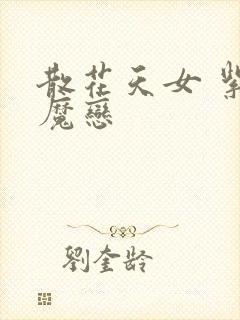 散花天女 紫
魔戀
劉奎齡